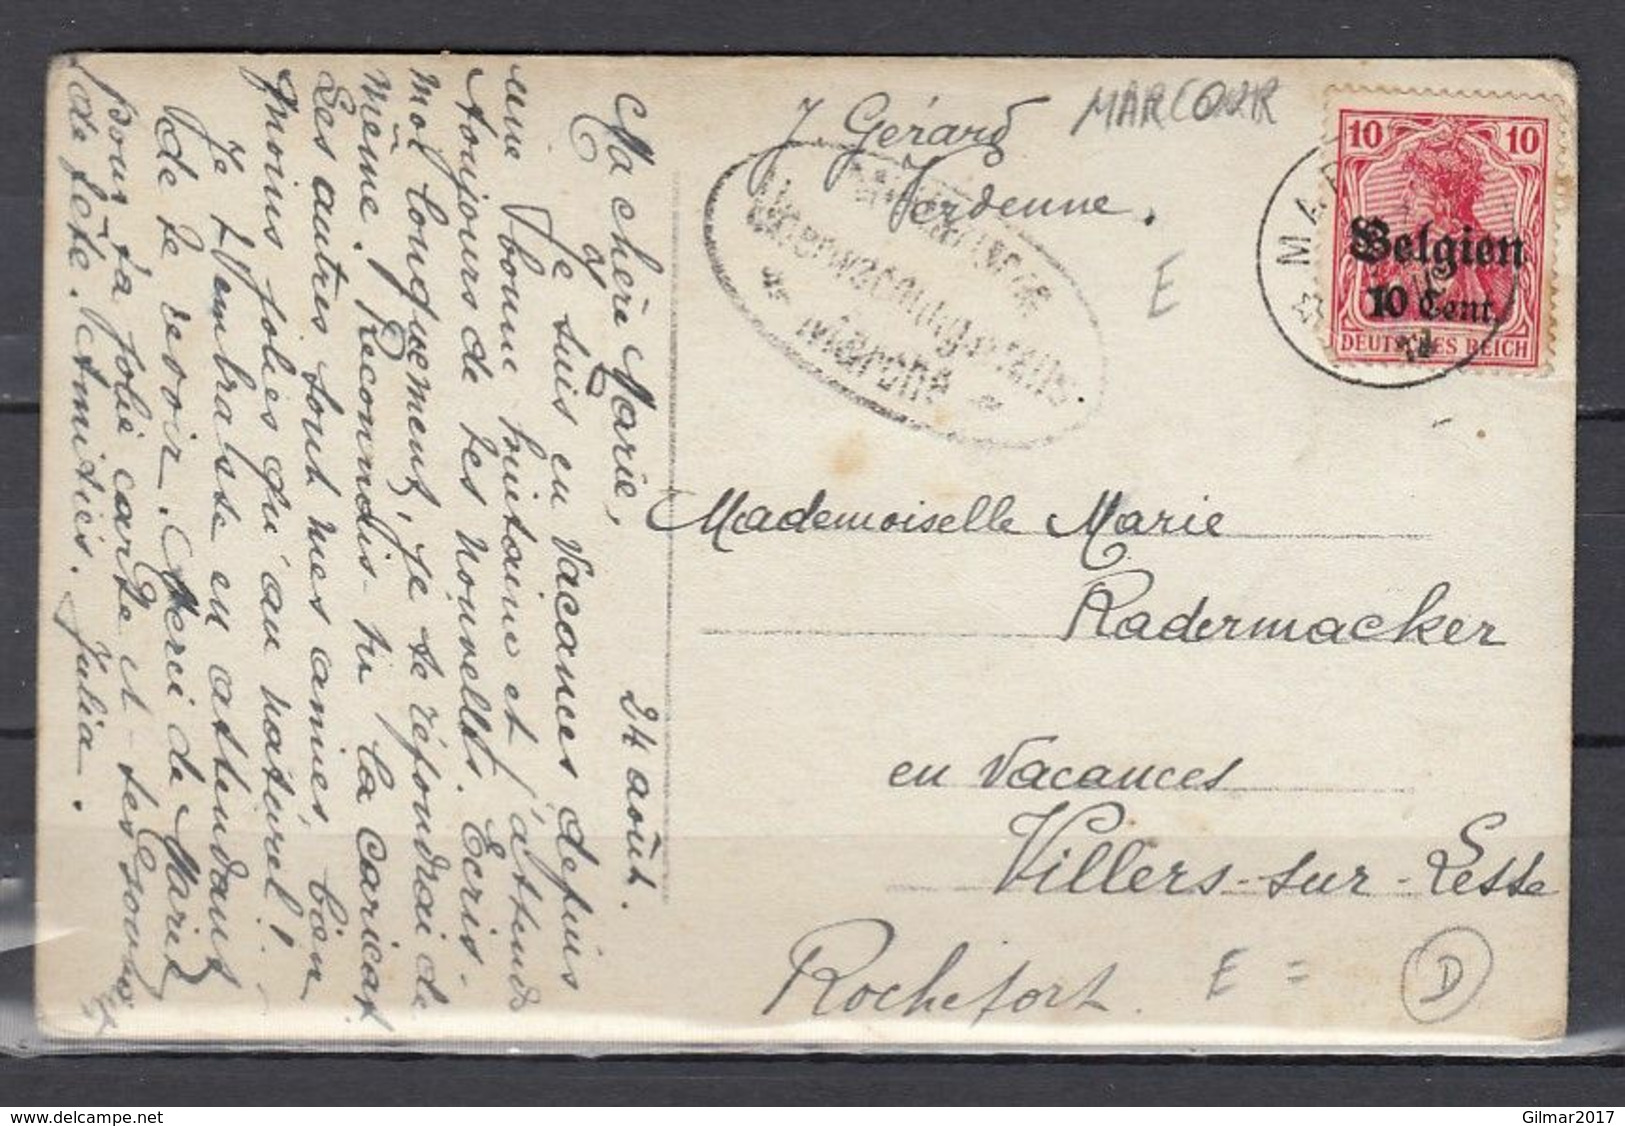 Ma chère Marie,
24 août.
Je suis en vacances depuis
une bonne huitaine et j'attends
toujours de tes nouvelles. Ecris-
moi longuement, je te répondrai de
même. Reconnais-tu la caricat
Les autres sont mes amies, bien
moins jolies qu'au naturel!
Je t'embrasse en attendant
de te revoir. Merci de Marie
pour ta jolie carte et tes souhaits
de fête. Amitiés. Julia.
J. Gérard
Verdenne.
MARCOUR
Militärische
Ueberwachungsstelle
Marche
E
MAR
10 10
Belgien
10 Cent.
DEUTSCHES REICH
Mademoiselle Marie
Radermacker
en vacances
Villers-sur-Lesse
Rochefort.
E =
D
delcampe.net
Gilmar2017